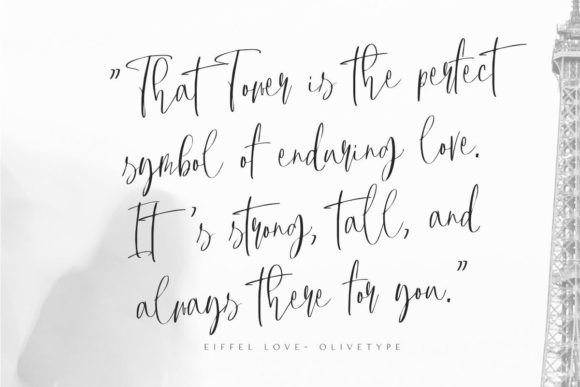 ”That Tower is the perfect
symbol of enduring love.
It 's strong, tall, and
always there for you.”
EIFFEL LOVE- OLIVETYPE